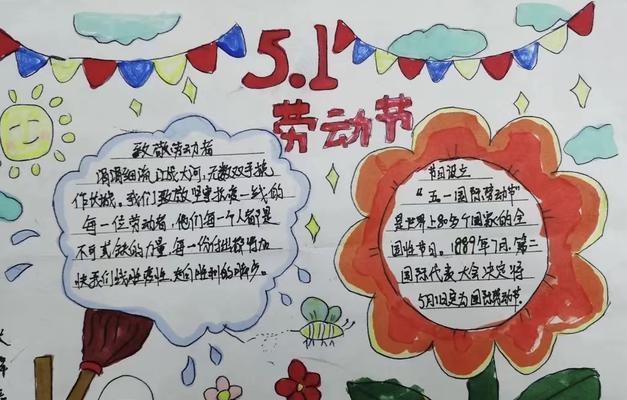 5.1
劳动节
致敬劳动者
涓涓细流，让成大河，无数双手挽
作长城。我们致敬坚守抗疫一线的
每一位劳动者，他们每一个人都是
不可或缺的力量，每一份付出都将加
快我们战胜疫情，走向胜利的脚步。
节日设立
“五一国际劳动节”
是世界上80多个国家的全
国性节日。1889年7月，第二
国际代表大会决定将
5月1日定为国际劳动节。